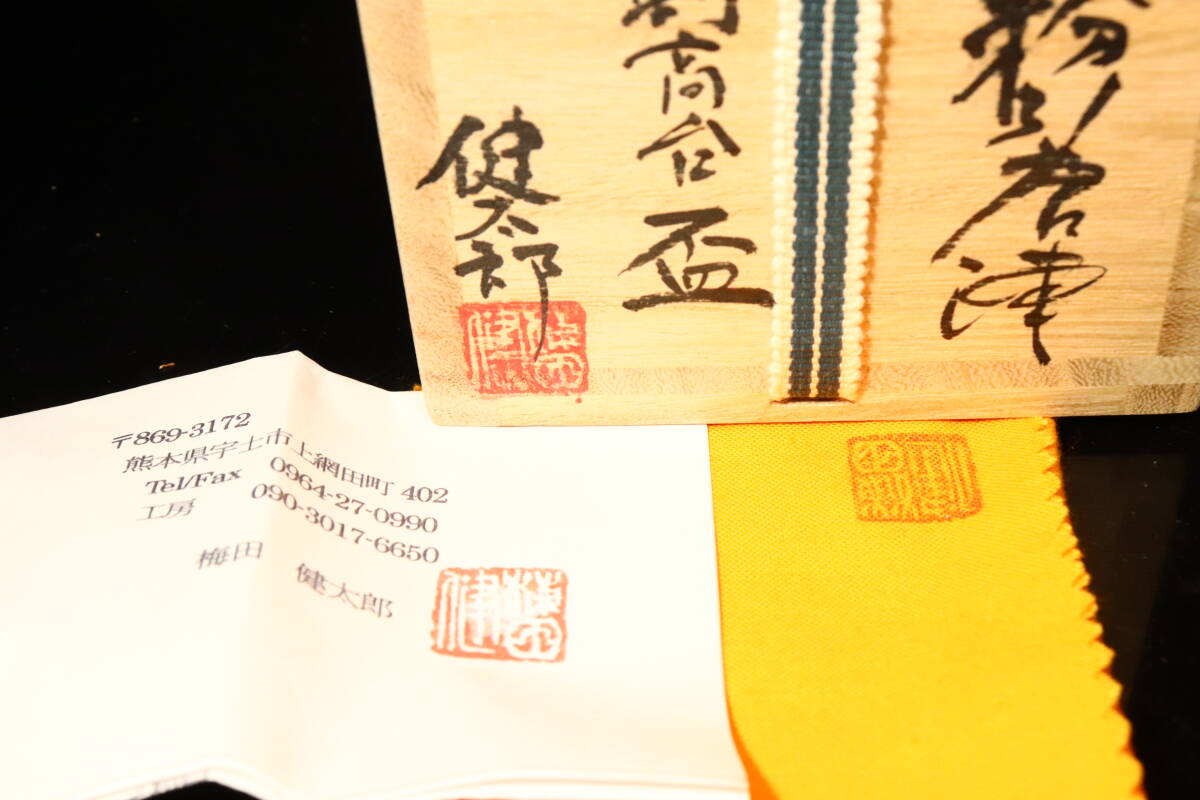 粉唐津
割高台盃
健太郎
〒869-3172
熊本県宇土市上網田町 402
Tel/Fax 0964-27-0990
工房 090-3017-6650
梅田 健太郎